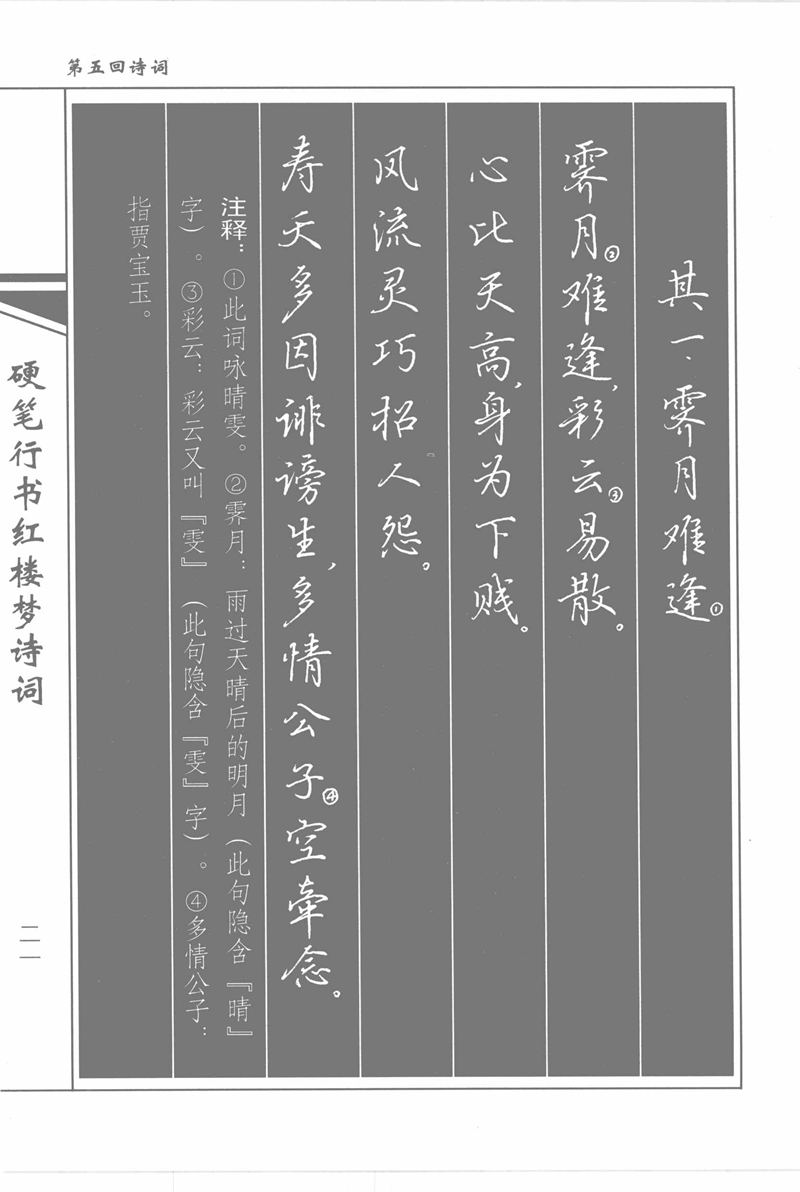 第五回诗词
其一、霁月难逢①
霁月②难逢，彩云③易散。
心比天高，身为下贱。
风流灵巧招人怨。
寿夭多因诽谤生，多情公子④空牵念。
注释：①此词咏晴雯。②霁月：雨过天晴后的明月（此句隐含『晴』
字）。③彩云：彩云又叫『雯』（此句隐含『雯』字）。④多情公子：
指贾宝玉。
硬笔行书红楼梦诗词
二一